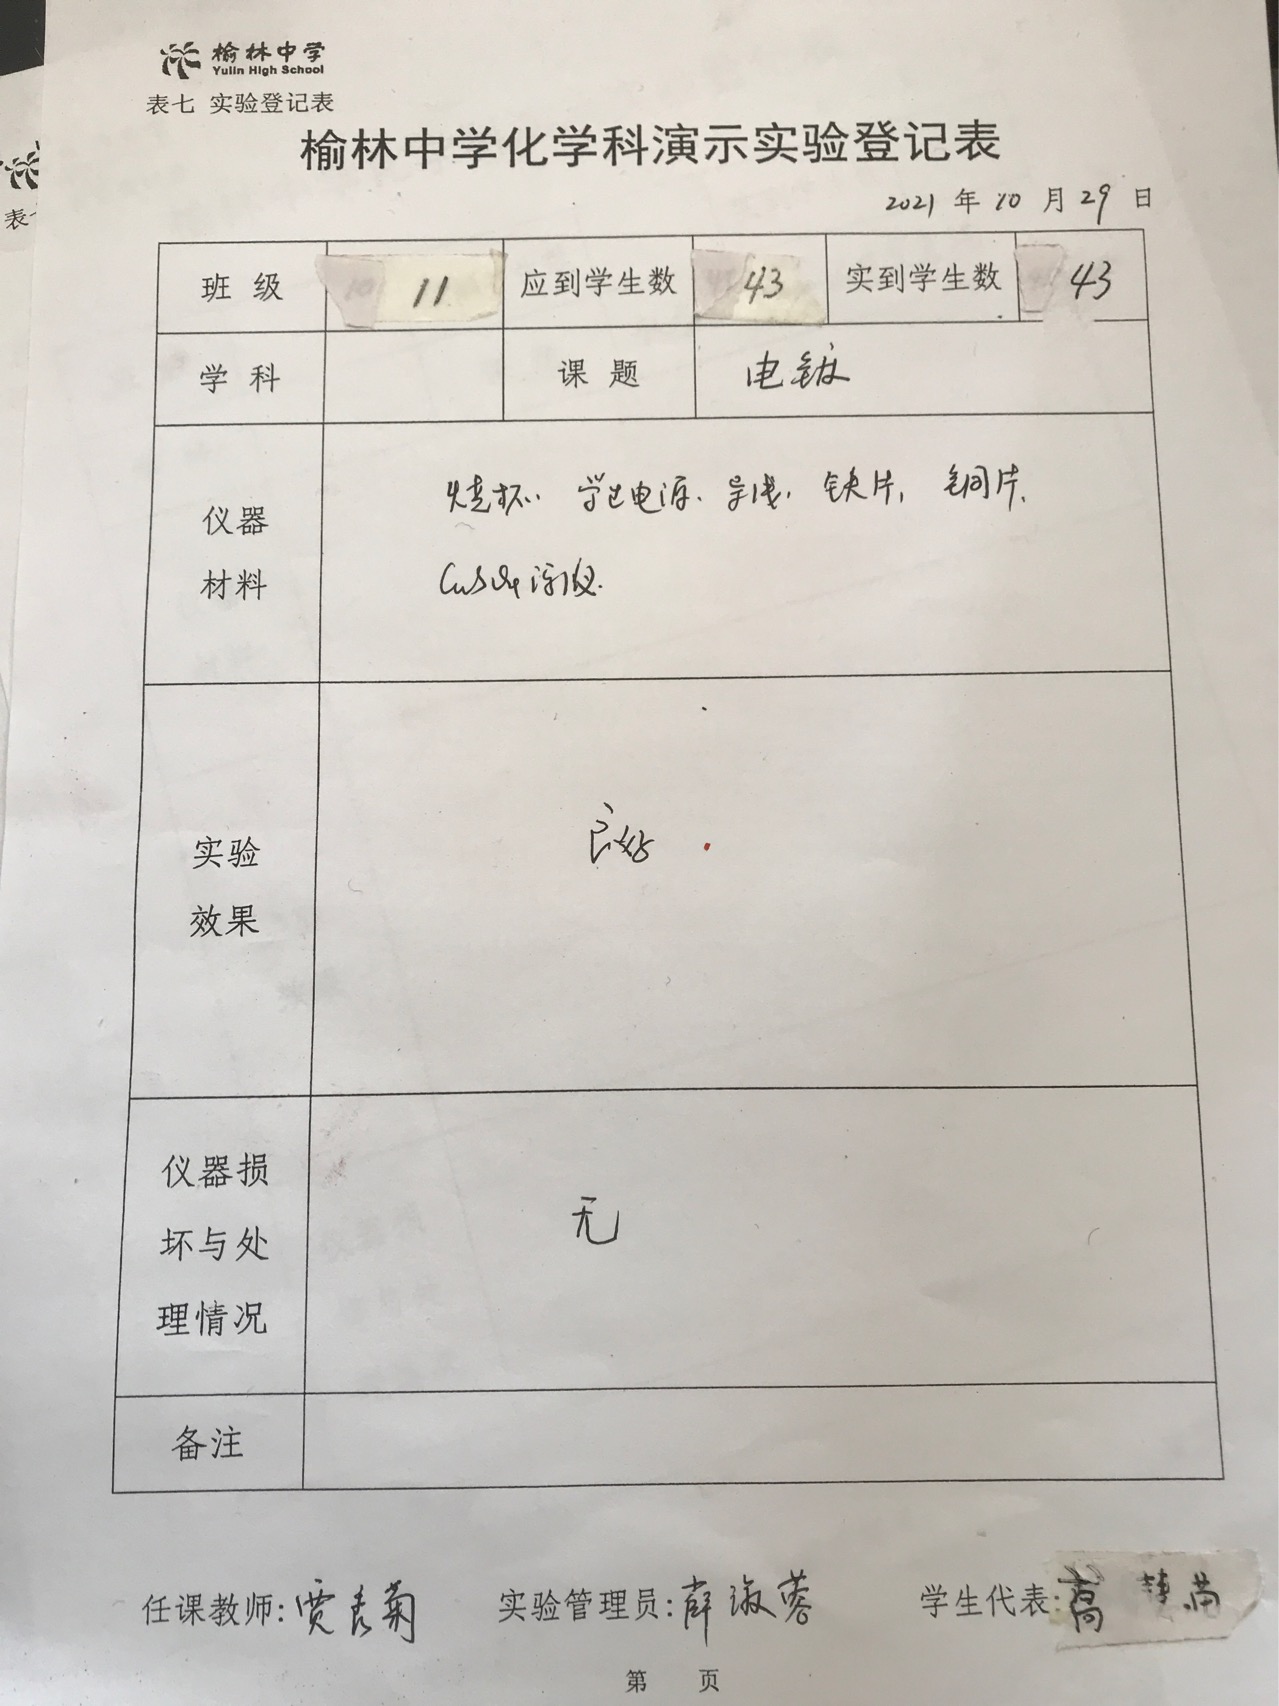 榆林中学
Yulin High School
表七 实验登记表
榆林中学化学科演示实验登记表
2021 年 10 月 29 日
班 级 11 应到学生数 43 实到学生数 43
学 科 课 题 电镀
仪器
材料
烧杯、学生电源、导线、铁片、铜片、
CuSO4溶液.
实验
效果
良好
仪器损
坏与处
理情况
无
备注
任课教师: 贾 菊 实验管理员: 薛淑蓉 学生代表: 高
第 页
表